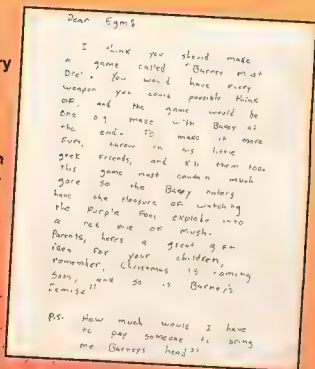 ry
Dear Egm$
I think you should make
a game called "Barney must
Die". You would have every
weapon you could possibly think
of, and the game would be
one big maze with Barney at
the end. To make it more
fun, throw in his little
geek friends, and kill them too.
this game must contain much
gore so the Barney haters
have the pleasure of watching
the Purple Fool explode into
a red pile of mush.
Parents, here's a great gift
idea for your children,
remember, Christmas is coming
soon, and so is Barney's
demise!!
P.S. How much would I have
to pay someone to bring
me Barneys head??